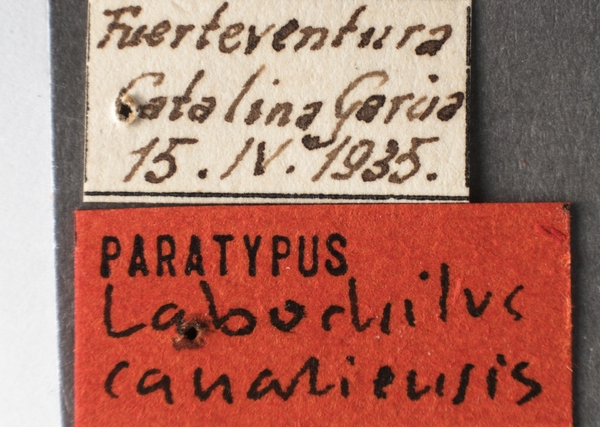 Fuerteventura
Catalina Garcia
15. IV. 1935.
PARATYPUS
Labochilus
canariensis